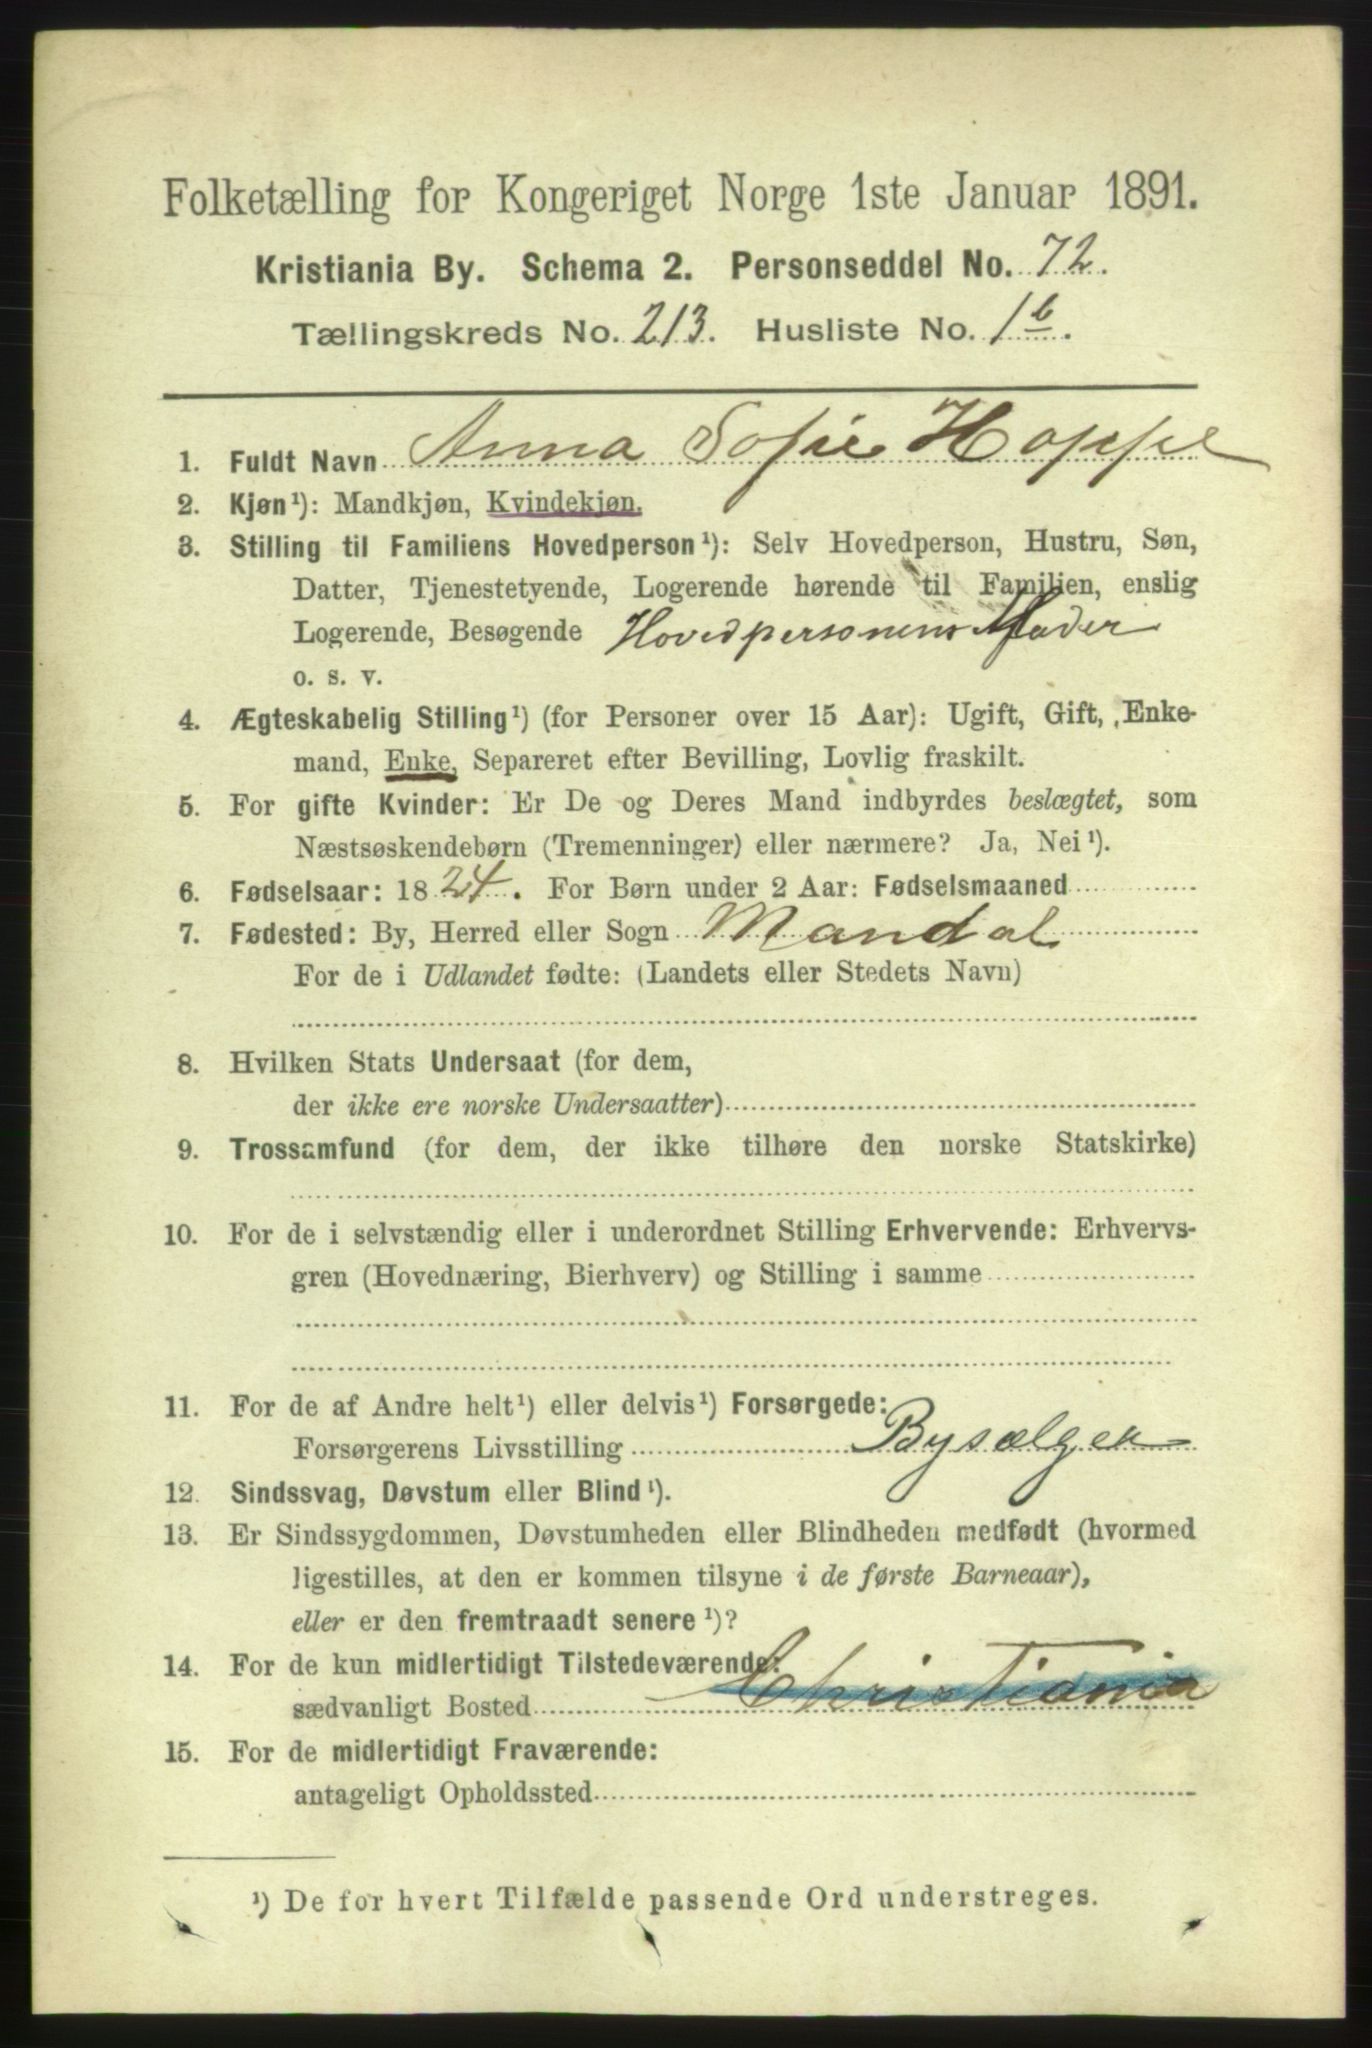 Folketælling for Kongeriget Norge 1ste Januar 1891.
Kristiania By. Schema 2. Personseddel No. 72.
Tællingskreds No. 213. Husliste No. 1b.
1. Fuldt Navn Anna Sofie Hoppe
2. Kjøn¹): Mandkjøn, Kvindekjøn.
3. Stilling til Familiens Hovedperson¹): Selv Hovedperson, Hustru, Søn,
Datter, Tjenestetyende, Logerende hørende til Familien, enslig
Logerende, Besøgende Hovedpersonens Moder
o. s. v.
4. Ægteskabelig Stilling¹) (for Personer over 15 Aar): Ugift, Gift, Enke-
mand, Enke, Separeret efter Bevilling, Lovlig fraskilt.
5. For gifte Kvinder: Er De og Deres Mand indbyrdes beslægtet, som
Næstsøskendebørn (Tremenninger) eller nærmere? Ja, Nei¹).
6. Fødselsaar: 1824. For Børn under 2 Aar: Fødselsmaaned
7. Fødested: By, Herred eller Sogn Mandal
For de i Udlandet fødte: (Landets eller Stedets Navn)
8. Hvilken Stats Undersaat (for dem,
der ikke ere norske Undersaatter)
9. Trossamfund (for dem, der ikke tilhøre den norske Statskirke)
10. For de i selvstændig eller i underordnet Stilling Erhvervende: Erhvervs-
gren (Hovednæring, Bierhverv) og Stilling i samme
11. For de af Andre helt¹) eller delvis¹) Forsørgede:
Forsørgerens Livsstilling Bysælger
12. Sindssvag, Døvstum eller Blind¹).
13. Er Sindssygdommen, Døvstumheden eller Blindheden medfødt (hvormed
ligestilles, at den er kommen tilsyne i de første Barneaar),
eller er den fremtraadt senere¹)?
14. For de kun midlertidigt Tilstedeværende:
sædvanligt Bosted Christiania
15. For de midlertidigt Fraværende:
antageligt Opholdssted
¹) De for hvert Tilfælde passende Ord understreges.